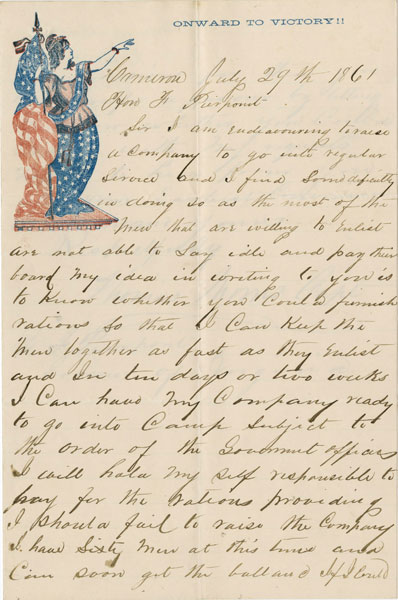 ONWARD TO VICTORY!!
Cameron July 29th 1861
Hon F Pierpoint
Sir I am endeavouring to raise
a Company to go into regular
Service and I find Some difficulty
in doing so as the most of the
Men that are willing to Enlist
are not able to Lay idle and pay their
board My idea in writing to you is
to Know whether you Could furnish
rations So that I Can Keep the
Men together as fast as they Enlist
and In ten days or two weeks
I Can have My Company ready
to go into Camp Subject to
the order of the Government officers
I will hold My self responsible to
pay for the Rations providing
I should fail to raise the Company
I have Sixty Men at this time and
Can soon get the ballance If I Could